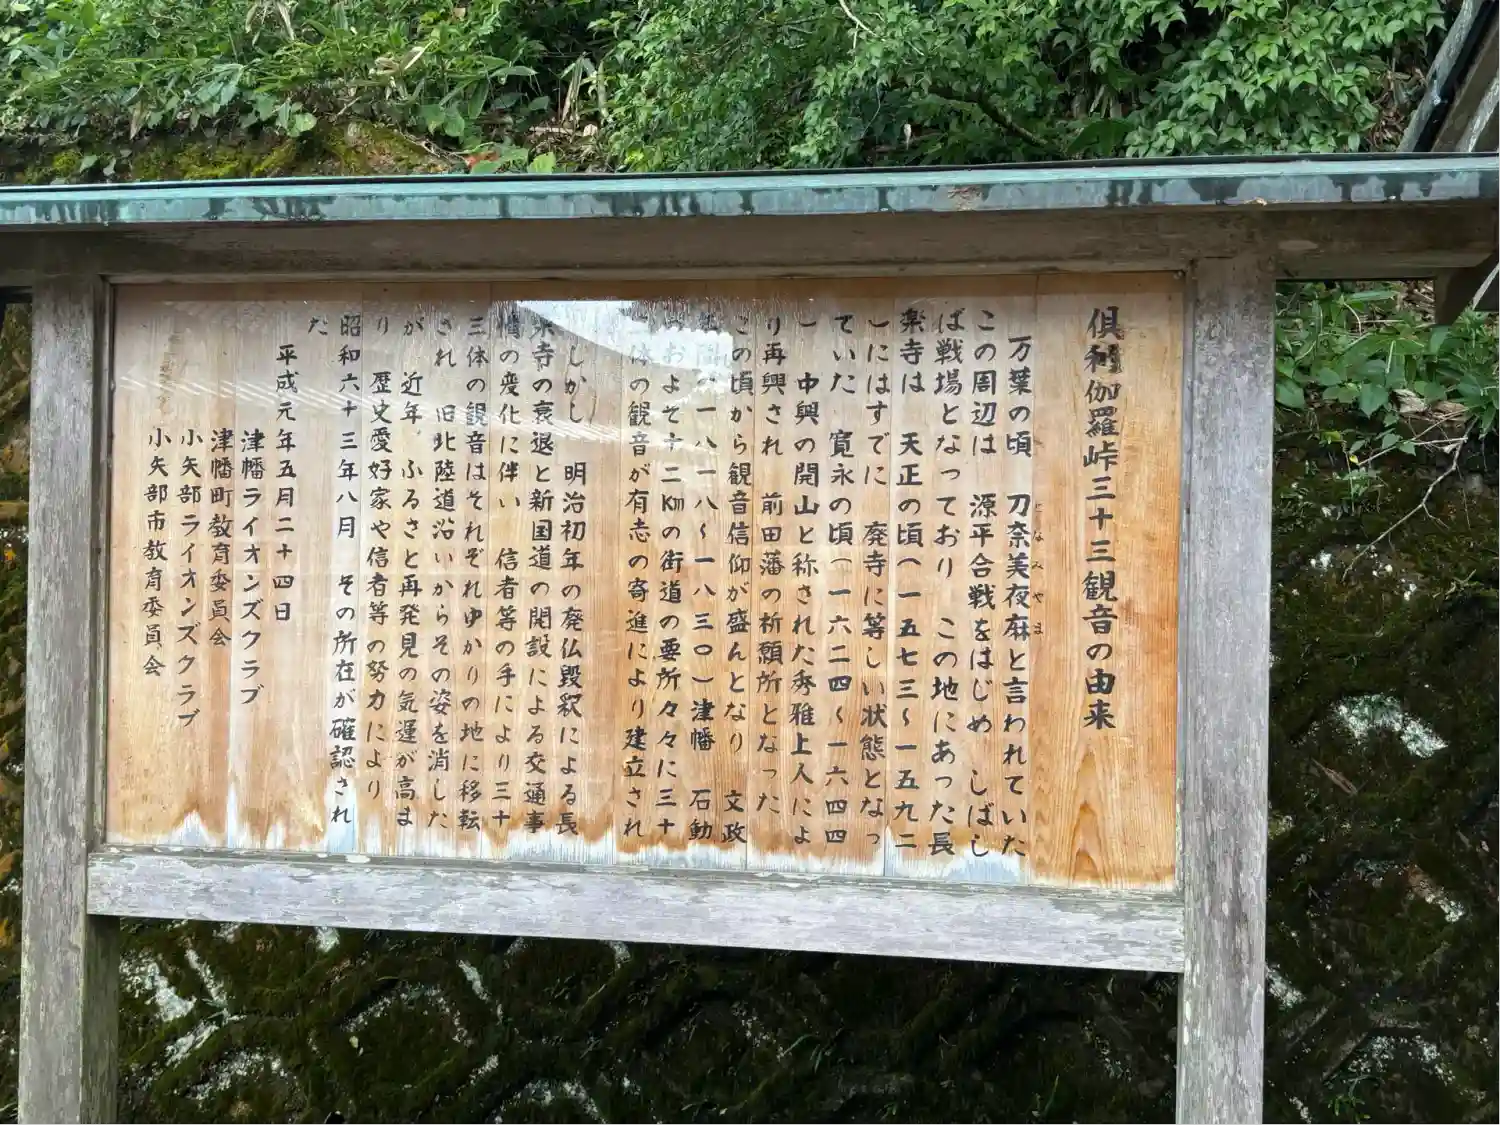 倶利伽羅峠三十三観音の由来
万葉の頃 刀奈美夜麻と言われていた
となみやま
この周辺は 源平合戦をはじめ しばし
ば戦場となっており この地にあった長
楽寺は 天正の頃(一五七三〜一五九二
)にはすでに 廃寺に等しい状態となっ
ていた 寛永の頃(一六二四〜一六四四
) 中興の開山と称された秀雅上人によ
り再興され 前田藩の祈願所となった
この頃から観音信仰が盛んとなり 文政
一八一八〜一八三〇)津幡 石動
およそ十二㎞の街道の要所々々に三十
体の観音が有志の寄進により建立され
しかし 明治初年の廃仏毀釈による長
楽寺の衰退と新国道の開設による交通事
情の変化に伴い 信者等の手により三十
三体の観音はそれぞれゆかりの地に移転
され 旧北陸道沿いからその姿を消した
が 近年 ふるさと再発見の気運が高ま
り 歴史愛好家や信者等の努力により
昭和六十三年八月 その所在が確認され
た
平成元年五月二十四日
津幡ライオンズクラブ
津幡町教育委員会
小矢部ライオンズクラブ
小矢部市教育委員会